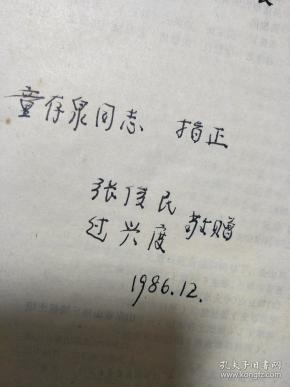 童存泉同志 指正
张俊民
过兴度 敬赠
1986.12.
孔夫子旧书网